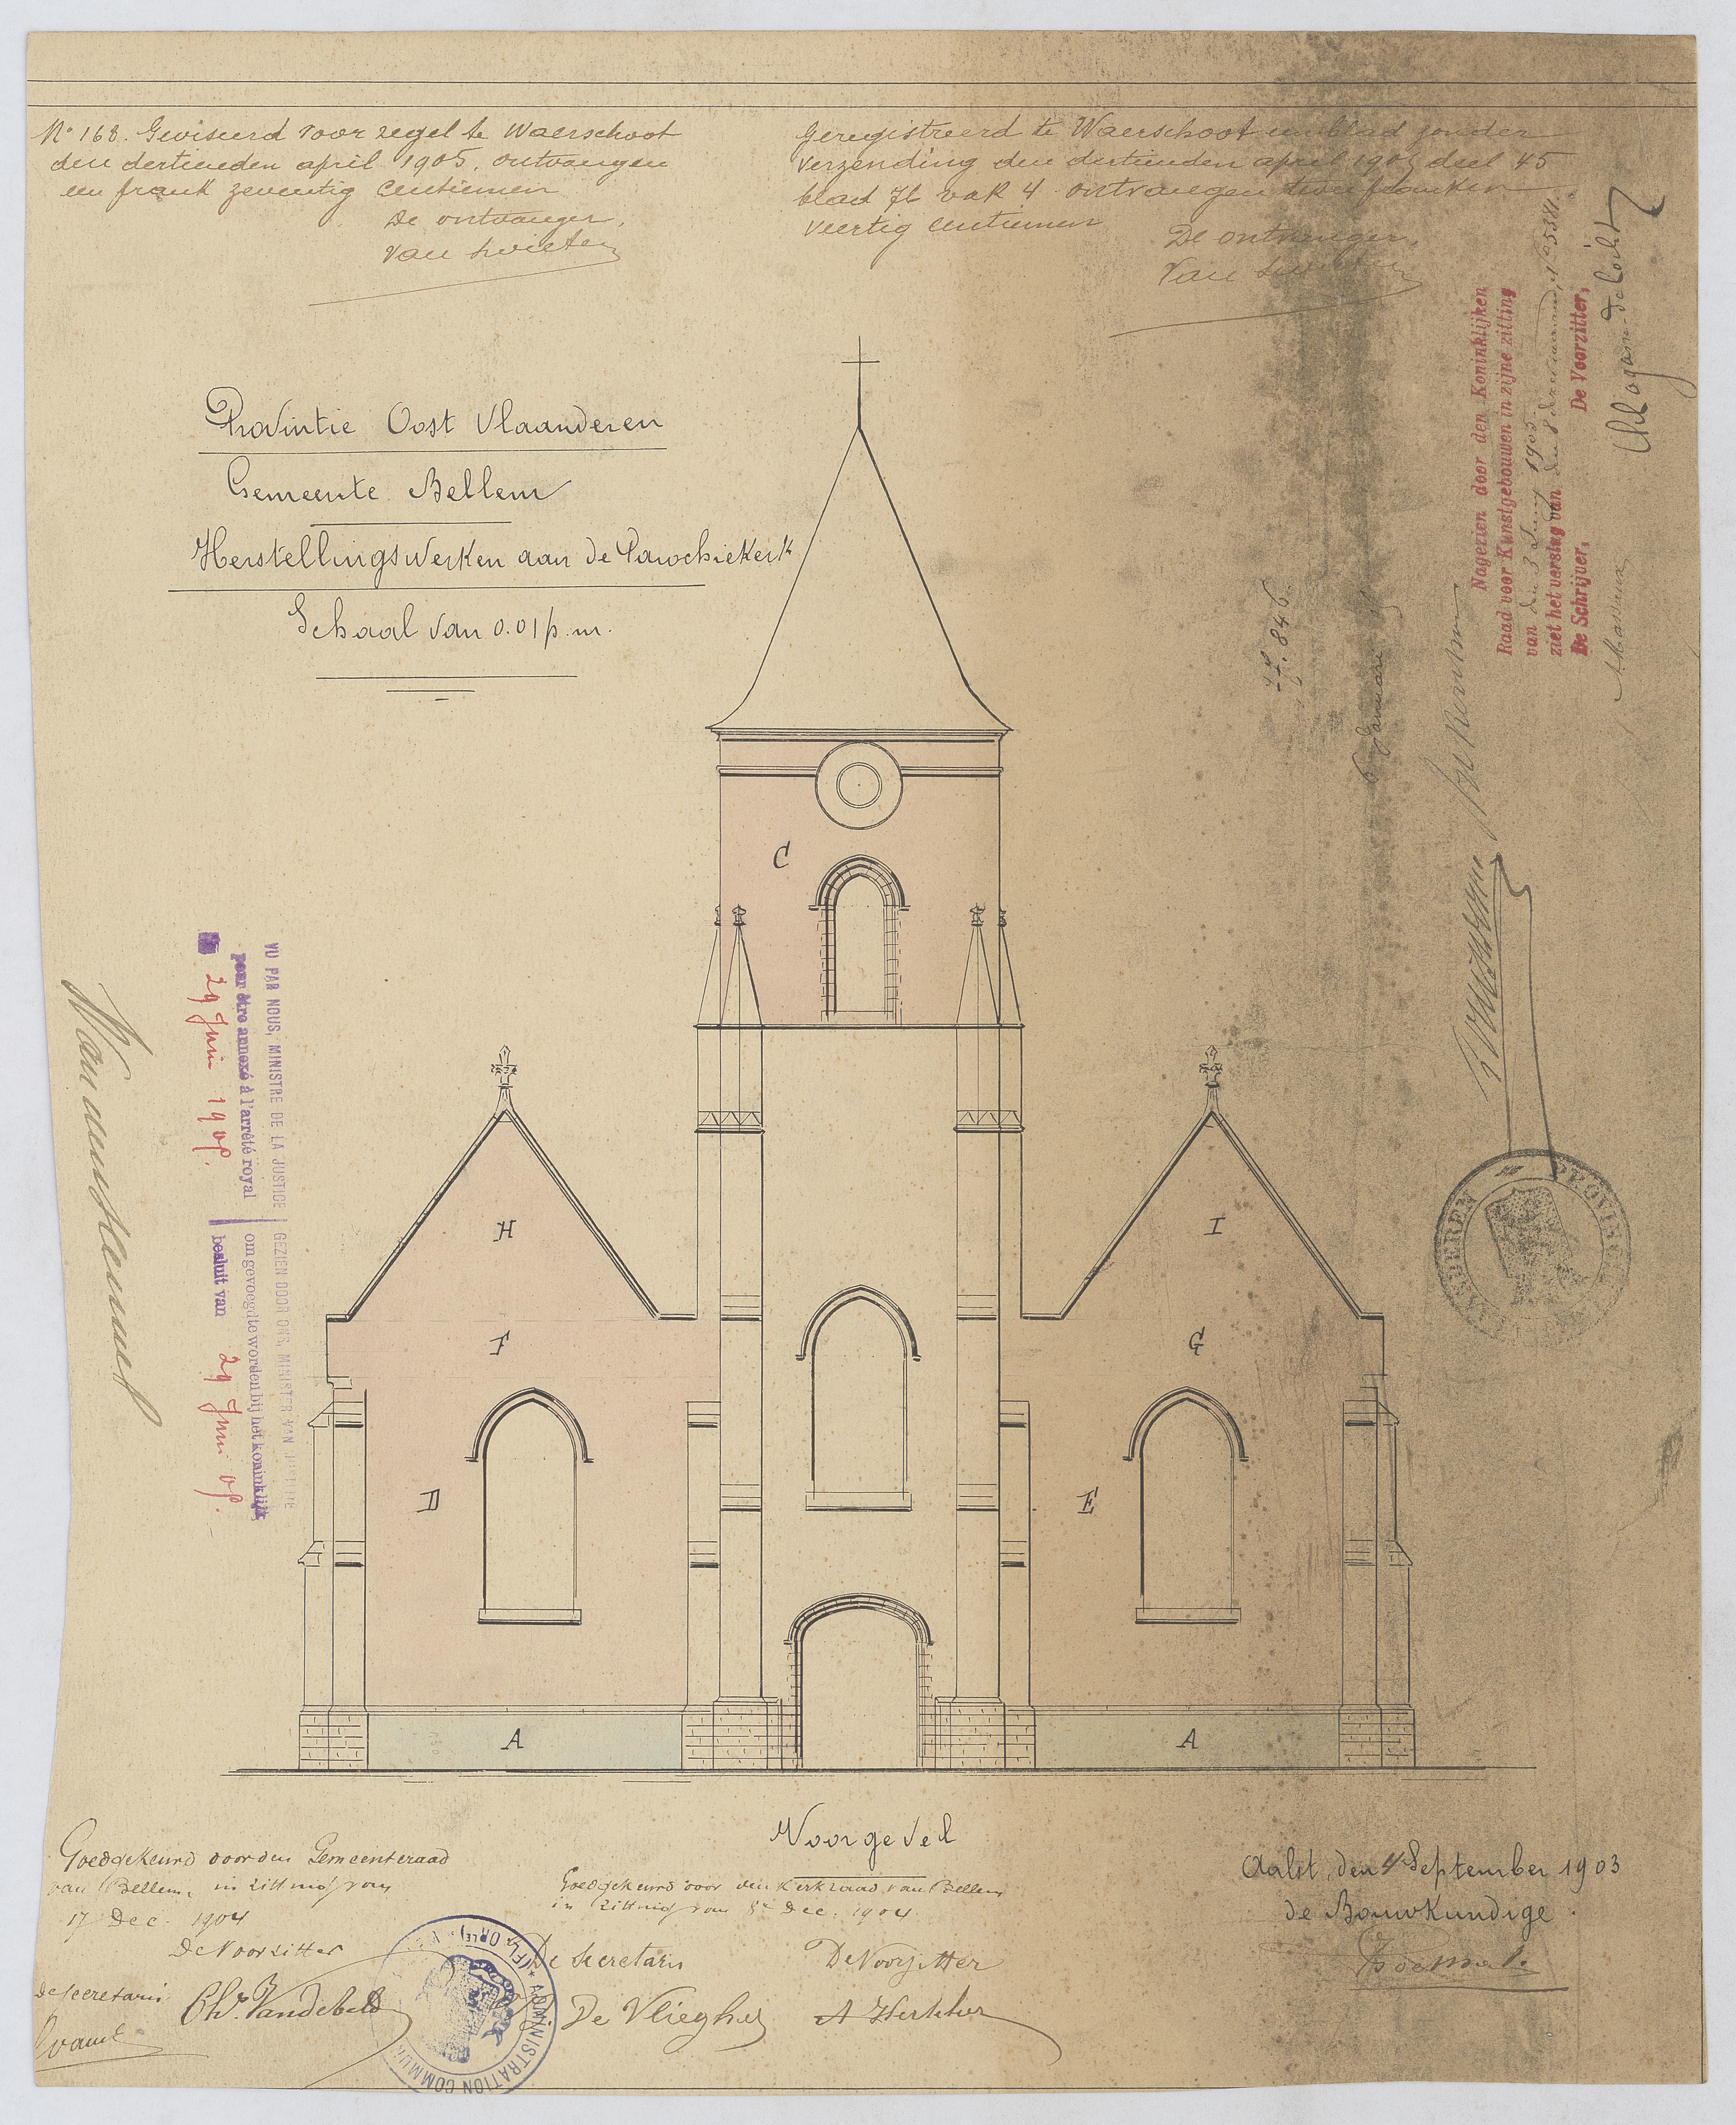 No 168. Geviseerd voor zegel te Waerschoot
den dertienden april 1905. ontvangen
een frank zeventig centiemen
De ontvanger,
Van Swieten
Geregistreerd te Waerschoot een blad zonder
verzending den dertienden april 1905 deel 45
blad 76 vak 4 ontvangen twee franken
veertig centiemen
De ontvanger,
Van Swieten
Provintie Oost Vlaanderen
Gemeente Bellem
Herstellingswerken aan de Parochiekerk
Schaal van 0.01 p. m.
Nagezien door den Koninklijken
Raad voor Kunstgebouwen in zijne zitting
van den 3 Juny 1905.
ziet het verslag van den
De Schrijver, De Voorzitter,
Massaux
Lagasse-de Locht
6 Januari
VU PAR NOUS, MINISTRE DE LA JUSTICE
pour être annexé à l'arrêté royal
29 Juin 1905.
GEZIEN DOOR ONS, MINISTER VAN JUSTITIE
om gevoegd te worden bij het koninklijk
besluit van 29 Juni 05.
C
H
I
F
G
D
E
A
A
Voorgevel
Goedgekeurd door den Gemeenteraad
van Bellem, in zitting van
17 Dec. 1904
De Voorzitter
De Secretaris
Goedgekeurd door den Kerkraad van Bellem
in zitting van 8e Dec. 1904.
De Secretaris
De Voorzitter
De Vliegher
ADMINISTRATION COMMU
Aalst, den 4 September 1903
de Bouwkundige.